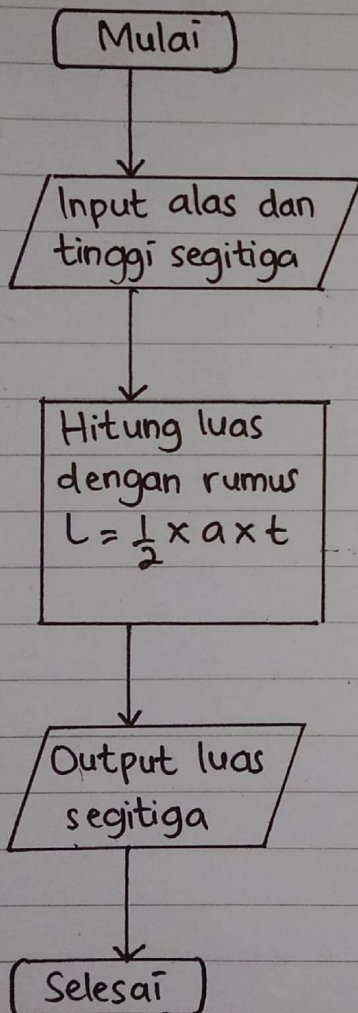 Mulai
Input alas dan
tinggi segitiga
Hitung luas
dengan rumus
L = 1/2 x a x t
Output luas
segitiga
Selesai